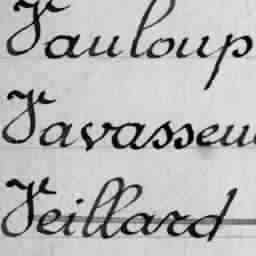 Vauloup
Vavasseu
Veillard